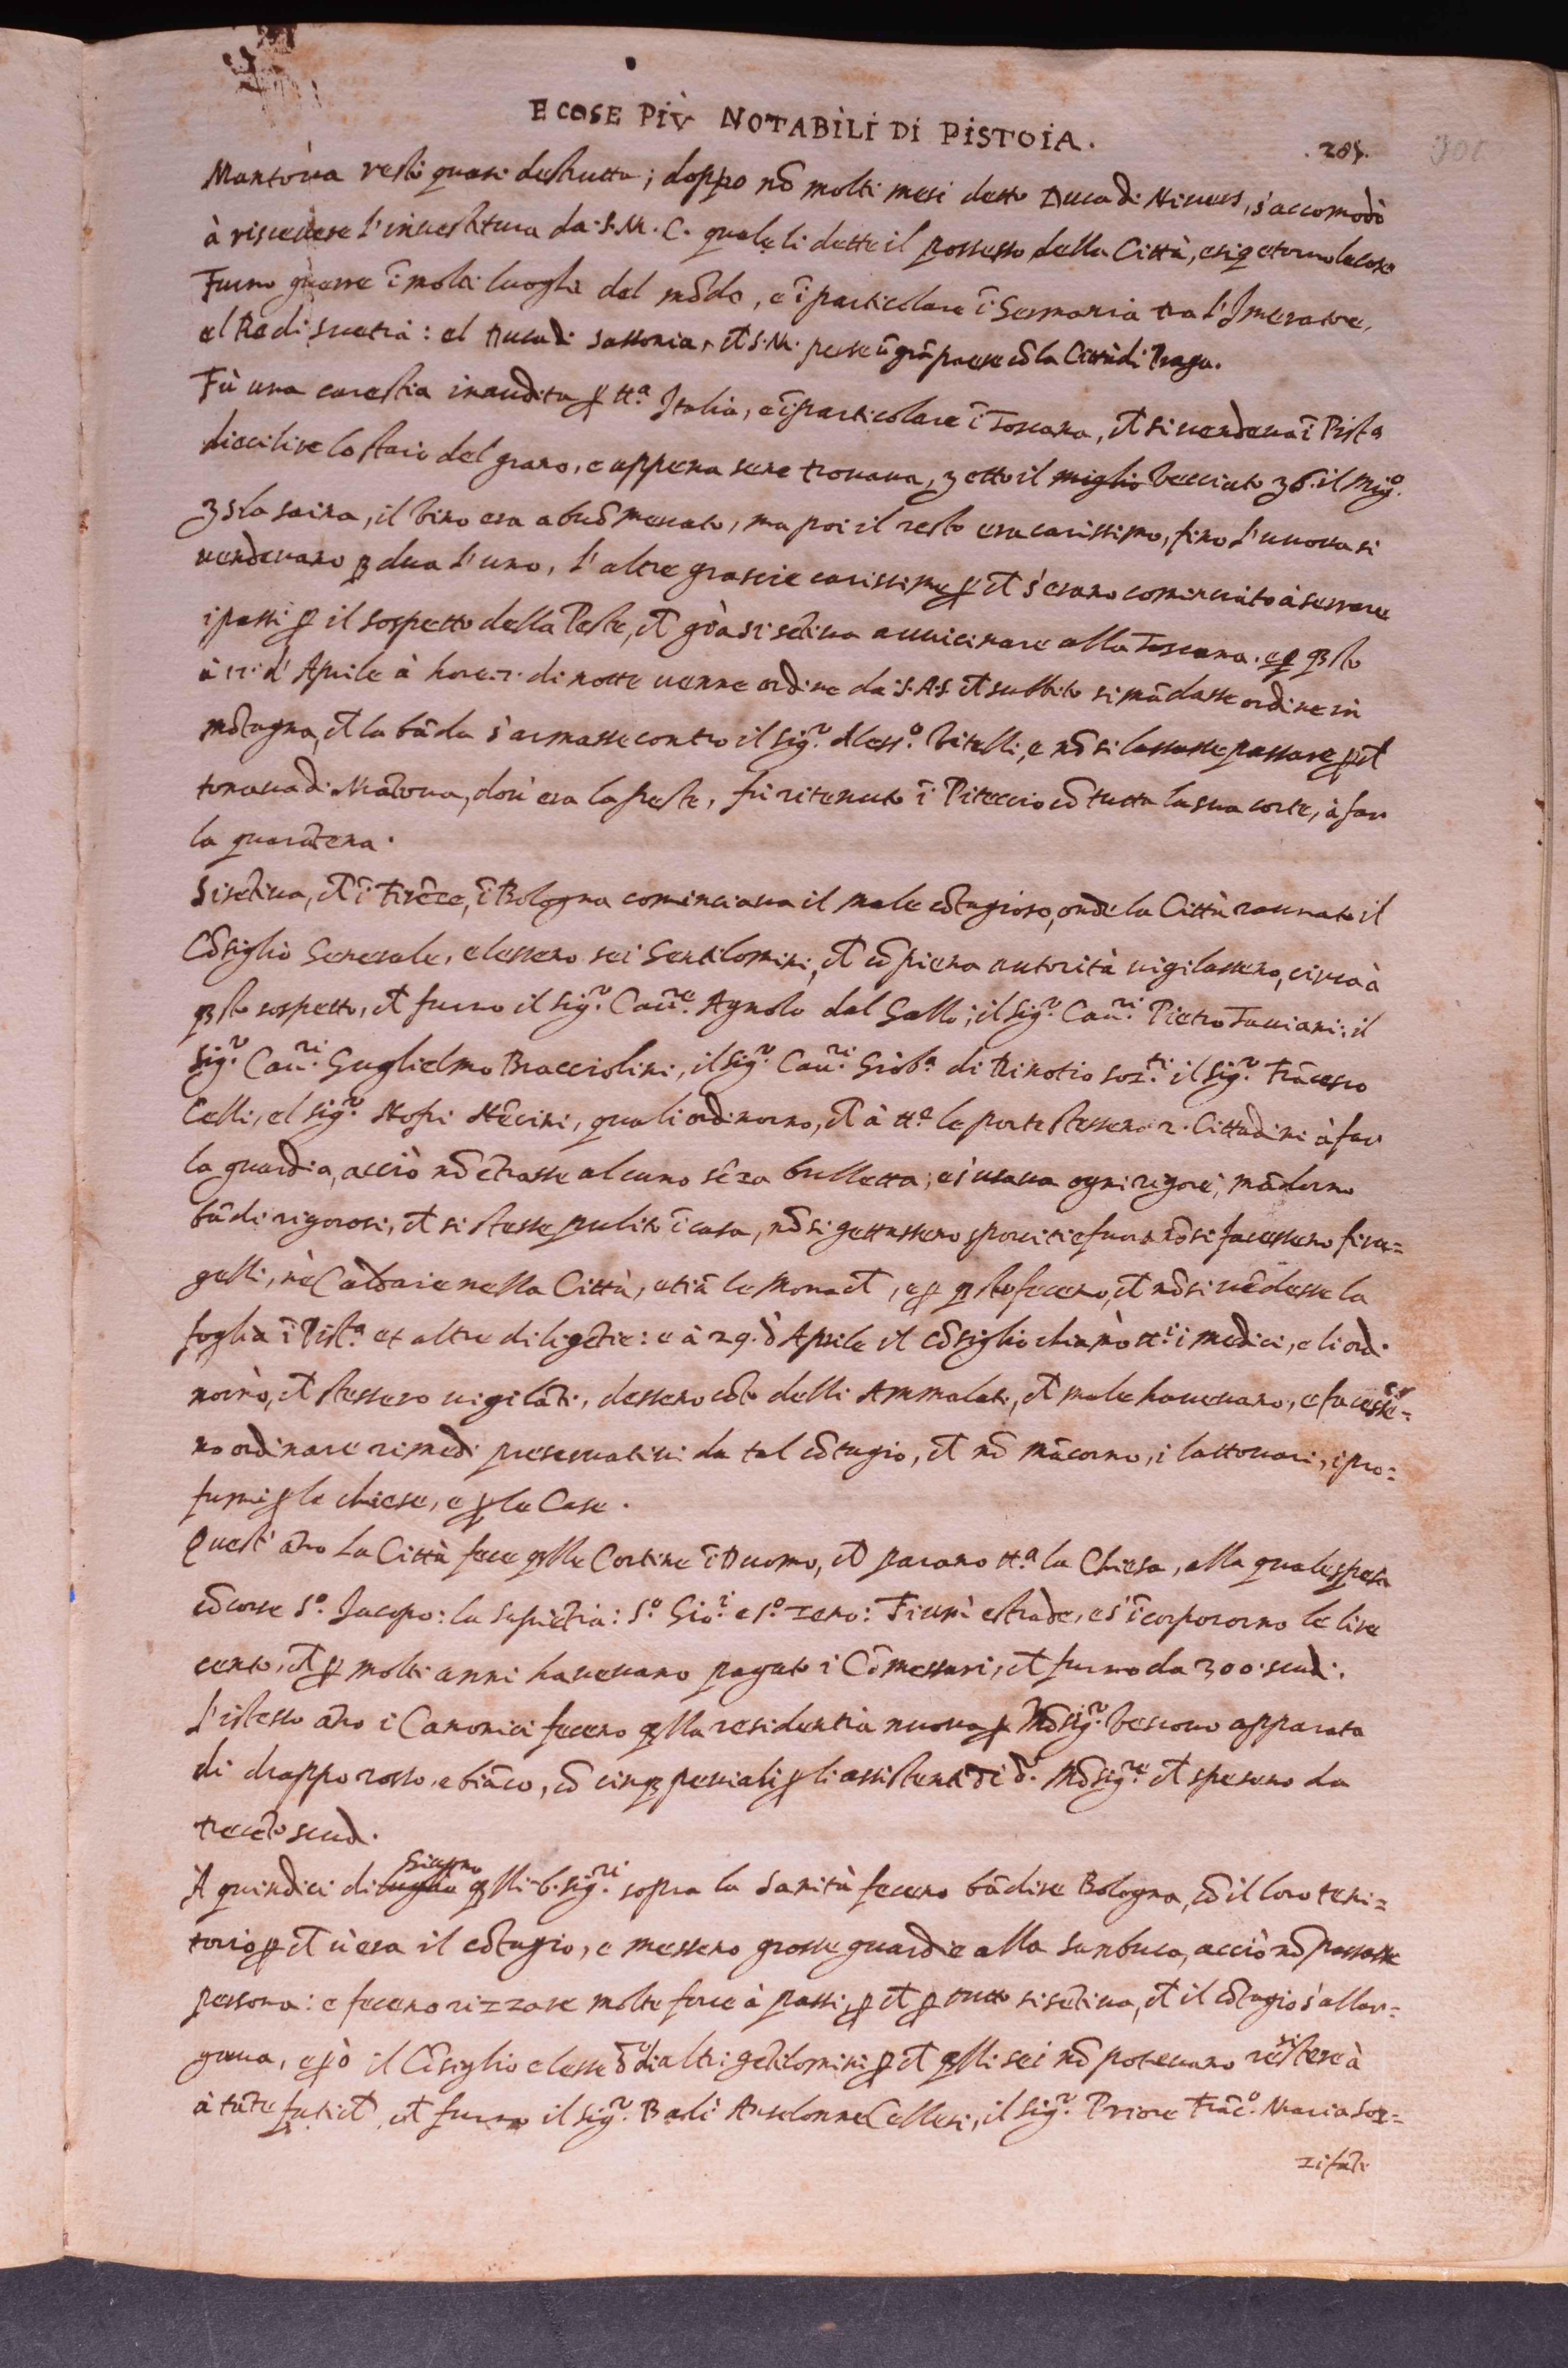 E COSE PIÙ NOTABILI DI PISTOIA.
.205.
Mantova restò quasi destrutta; doppo nō molti mesi detto Duca di Nivers, s'accomodò
à riscevere l'investitura da. S. M. C. quale li dette il possesso della Città, e si
Furno guerre ī molti luoghi del mōdo, e ī particolare ī Germania tra l'Imeratore,
el Re di Svetia: el Duca di Sassonia, et S. M. perse ū grā paese cō la Città di Praga.
Fù una carestia inaudita p tt.ª Italia, e ī particolare ī Toscana, ct si vendeva ī Pist.ª
dieci lire lo staio del grano, e appena sene trovava, 3 otto il miglio vecciato 36. il mig.º
35 la saina, il vino era a buō mercato, ma poi il resto era carissimo, fino l'uuova si
vendevano p dua l'uno, l'altre grascie carissime p ct s'erano cominciato à serrare
i passi p il sospetto della Peste, ct già si sētiva avvicinare alla Toscana. e p qsto
à 12. d'Aprile à hore. 2. di notte venne ordine da. S. A. S. ct subbito si mādasse ordine in
mōtagna, ct la bāda s'armasse contro il sig.r Aless.º Vitelli, e nō si lassasse passare p ct
tornava di Mātova, dov'era la peste, fu ritenuto ī Piteccio cō tutta la sua corte, à far
la quarātena.
Si sētiva, ct ī Firēce, ī Bologna cominciava il male cōtagioso, onde la Città raunato il
Cōsiglio Generale, elessero sei Gentilomini, ct cō piena autorità vigilassero, circa à
qsto sospetto, ct furno il sig.r Cau.re Agnolo dal Gallo; il sig.r Cau.ri Pietro Taviani: il
sig.r Cau.ri Guglielmo Bracciolini, il sig.r Cau.ri Giob.ª di Rinotio soz.ti il sig.r Frācesco
Celli, el sig.r Nofri Nēcini, quali ordinorno, ct à tt.e le porte stessero 2. Cittadini à far
la guardia, acciò nō ētrasse alcuno sēza bulletta; e s'usava ogni rigore; mādorno
bādi rigorosi, ct si stesse pulito ī casa, nō si gettassero sporcitie fuora nō si facessero firu=
gelli, nè Caldaie nella Città, etiā le Monact, e p qsto fecero, ct nō si vēdesse la
foglia ī Pist.ª et altre diligētie: e à 29. d Aprile il cōsiglio chiamò tt.i i medici, e li ordi
norno, ct stessero vigilāti, dessero cōto delli Ammalati, ct male havevano, e facesse=
no ordinare rimedi preservativi da tal cōtagio, ct nō mācorno, i lattovari, i pro=
fumi p le chiese, e p le Case.
Quest'āno La Città fece qlle Cortine ī Duomo, ct parano tt.ª la Chiesa, alla quale spesa
cōcorse S.º Jacopo: la Sapiētia: S.º Gio.i e S.º Zeno: Fiumi e strade, e s'ī corpororno le lire
cento, ct p molti anni havevano pagato i Cōmessari, ct furno da 300. scudi.
L'istesso āno i Canonici fecero qlla residentia nuova p Mōsig.r Vescovo apparata
di drappo rosso, e biāco, cō cinq peviali p li assistenti di d. Mōsig.re ct spesero da
trecēto scudi.
Giugno
A quindici di luglio qlli. 6. sig.ri sopra la Sanità fecero bādire Bologna, cō il loro teri=
torio p ct v'era il cōtagio, e messero grosse guardie alla Sanbuca, acciò nō passasse
persona: e fecero rizzare molte force à passi, p ct p tutto si sētiva, ct il cōtagio s'allar=
gava, e p ò il Cōsiglio elesse altri gētilomini p ct qlli sei nō potevano resistere à
à tāte fatict, ct furno il sig.r Balì Anselonne Cellesi, il sig.r Priore Frāc.º Maria Soz=
zifāti